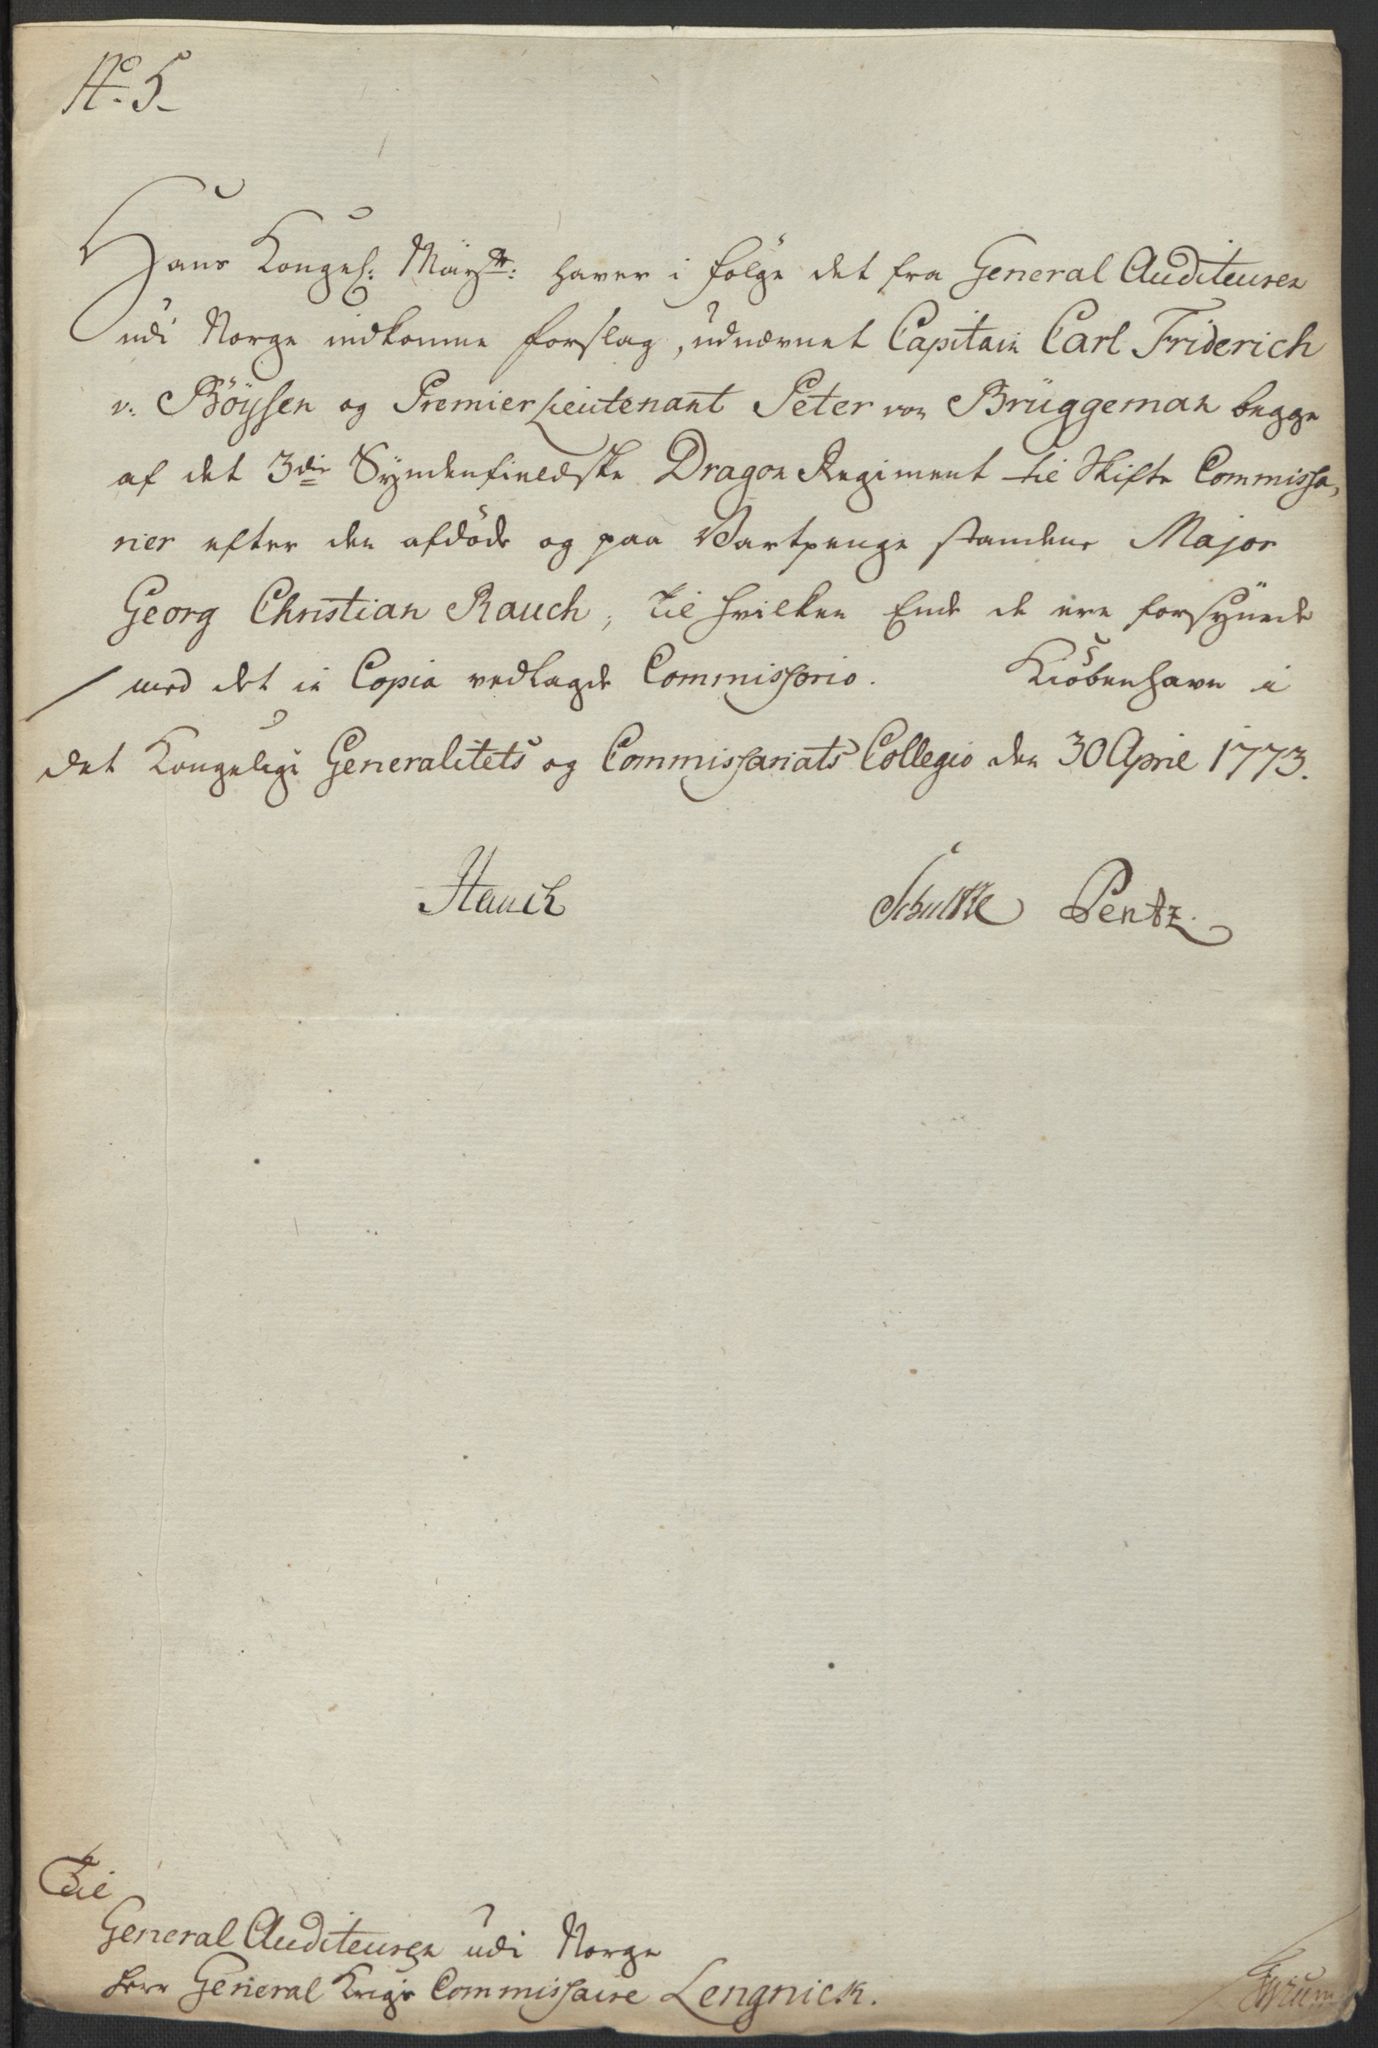 No. 5
Hans Kongel: Mayst: haver i følge det fra General Auditeuren
udi Norge indkomne forslag, udnævnet Capitain Carl Friderich
v: Böysen og Premier Lieutenant Peter von Brüggeman begge
af det 3die Syndenfieldske Dragon Regiment til Skifte Commissa,
rier efter den afdöde og paa Vartpenge standene Major
Georg Christian Rauch, til hvilken Ende de ere forsynede
/ med det in Copia vedlagde Commissorio. Kiöbenhavn i
det Kongelige Generalitets og Commissariats Collegio den 30 April 1773.
Hauch Schultze Pentz.
Til
General Auditeuren udi Norge
Herr General Krigs Commissaire Lengnick.